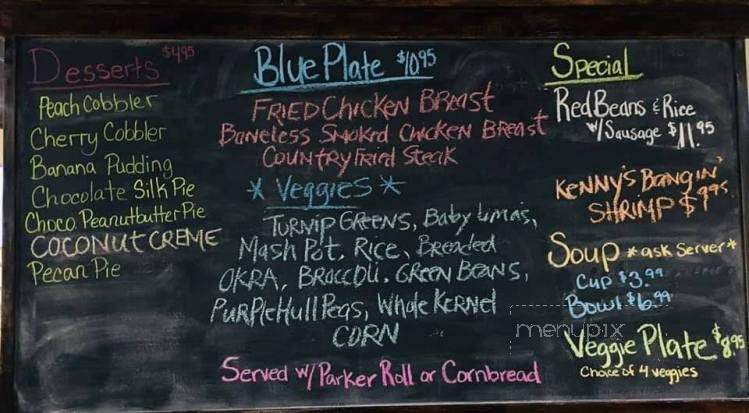 Desserts $4.95
Peach Cobbler
Cherry Cobbler
Banana Pudding
Chocolate Silk Pie
Choco. Peanutbutter Pie
COCONUT CREME
Pecan Pie
Blue Plate $10.95
FRIED CHICKEN BREAST
Boneless SMOKED CHICKEN BREAST
COUNTRY Fried Steak
* Veggies *
TURNIP GREENS, Baby Limas,
Mash Pot, Rice, Breaded
OKRA, BROCCOLI, GREEN BEANS,
PURPleHull Peas, Whole Kernel
CORN
Served w/ Parker Roll or Cornbread
Special
Red Beans & Rice
w/ Sausage $11.95
KENNY'S BANGIN'
SHRIMP $9.95
Soup *ask server*
Cup $3.99
Bowl $6.99
menupix
Veggie Plate $8.95
Choice of 4 veggies